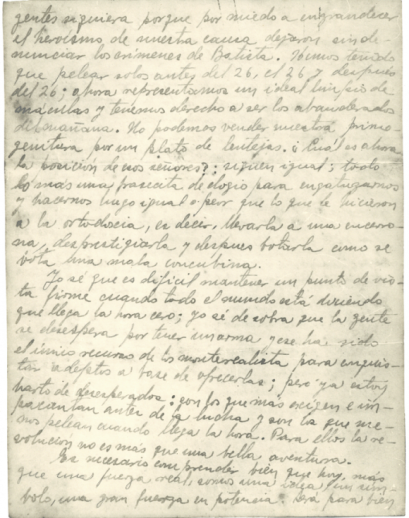 gentes siquiera porque por miedo a engrandecer
el heroísmo de nuestra causa dejaron sin de-
nunciar los crímenes de Batista. Hemos tenido
que pelear solos antes del 26, el 26 y después
del 26; ahora representamos un ideal limpio de
máculas y tenemos derecho a ser los abanderados
del mañana. No podemos vender nuestra primo-
genitura por un plato de lentejas. ¿Cuál es ahora
la posición de esos señores?; siguen igual; todo
lo más una frasecita de elogio para engatusarnos
y hacernos luego igual o peor que lo que le hicieron
a la ortodoxia, es decir, llevarla a una encerro-
na, desprestigiarla y después botarla como se
bota una mala concubina.
Yo sé que es difícil mantener un punto de vis-
ta firme cuando todo el mundo está diciendo
que llega la hora cero; yo sé de sobra que la gente
se desespera por tener un arma y ese ha sido
el único recurso de los montrealista para conquis-
tar adeptos a base de ofrecerlas; pero ya estoy
harto de desesperados: son los que más exigen e im-
pacientan antes de la lucha y son los que me-
nos pelean cuando llega la hora. Para ellos la re-
volución no es más que una bella aventura.
Es necesario comprender bien que hoy, más
que una fuerza real, somos una idea, un sím-
bolo, una gran fuerza en potencia. Será para bien